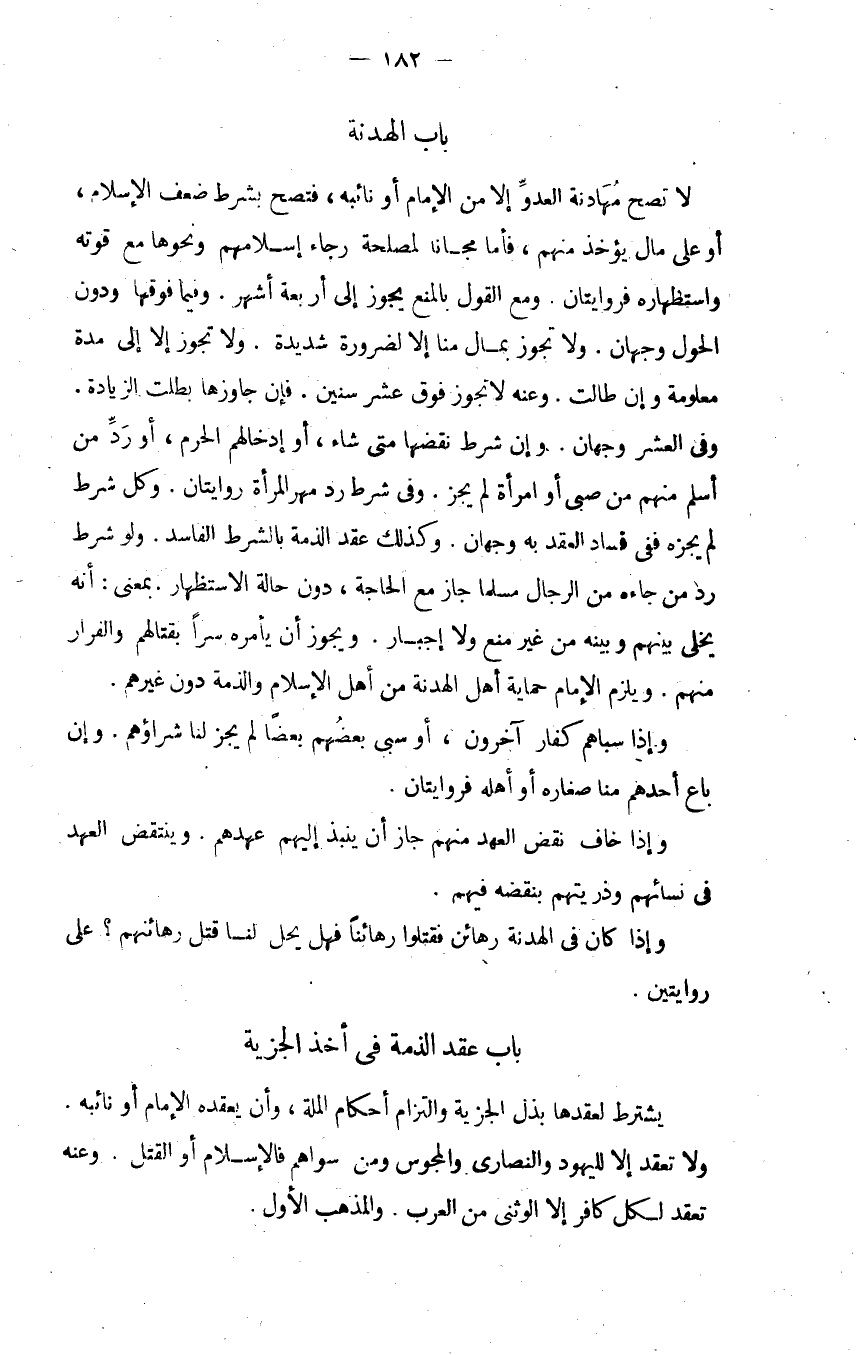 — ١٨٢ —
باب الهدنة
لا تصح مُهَادنة العدوِّ إلا من الإمام أو نائبه ، فتصح بشرط ضعف الإسلام ،
أو على مال يؤخذ منهم ، فأما مجانا لمصلحة رجاء إسلامهم ونحوها مع قوته
واستظهاره فروايتان . ومع القول بالمنع يجوز إلى أربعة أشهر . وفيما فوقها ودون
الحول وجهان . ولا تجوز بمال منا إلا لضرورة شديدة . ولا تجوز إلا إلى مدة
معلومة وإن طالت . وعنه لا تجوز فوق عشر سنين . فإن جاوزها بطلت الزيادة .
وفى العشر وجهان . وإن شرط نقضها متى شاء ، أو إدخالهم الحرم ، أو رَدِّ من
أسلم منهم من صبى أو امرأة لم يجز . وفى شرط رد مهر المرأة روايتان . وكل شرط
لم يجزه ففى فساد العقد به وجهان . وكذلك عقد الذمة بالشرط الفاسد . ولو شرط
رد من جاءه من الرجال مسلما جاز مع الحاجة ، دون حالة الاستظهار . بمعنى : أنه
يخلى بينهم وبينه من غير منع ولا إجبار . ويجوز أن يأمره سراً بقتالهم والفرار
منهم . ويلزم الإمام حماية أهل الهدنة من أهل الإسلام والذمة دون غيرهم .
وإذا سباهم كفار آخرون ، أو سبى بعضُهم بعضًا لم يجز لنا شراؤهم . وإن
باع أحدهم منا صغاره أو أهله فروايتان .
وإذا خاف نقض العهد منهم جاز أن ينبذ إليهم عهدهم . وينتقض العهد
فى نسائهم وذريتهم بنقضه فيهم .
وإذا كان فى الهدنة رهائن فقتلوا رهائناً فهل يحل لنا قتل رهائنهم ؟ على
روايتين .
باب عقد الذمة فى أخذ الجزية
يشترط لعقدها بذل الجزية والتزام أحكام الملة ، وأن يعقده الإمام أو نائبه .
ولا تعقد إلا لليهود والنصارى والمجوس ومن سواهم فالإسلام أو القتل . وعنه
تعقد لكل كافر إلا الوثنى من العرب . والمذهب الأول .